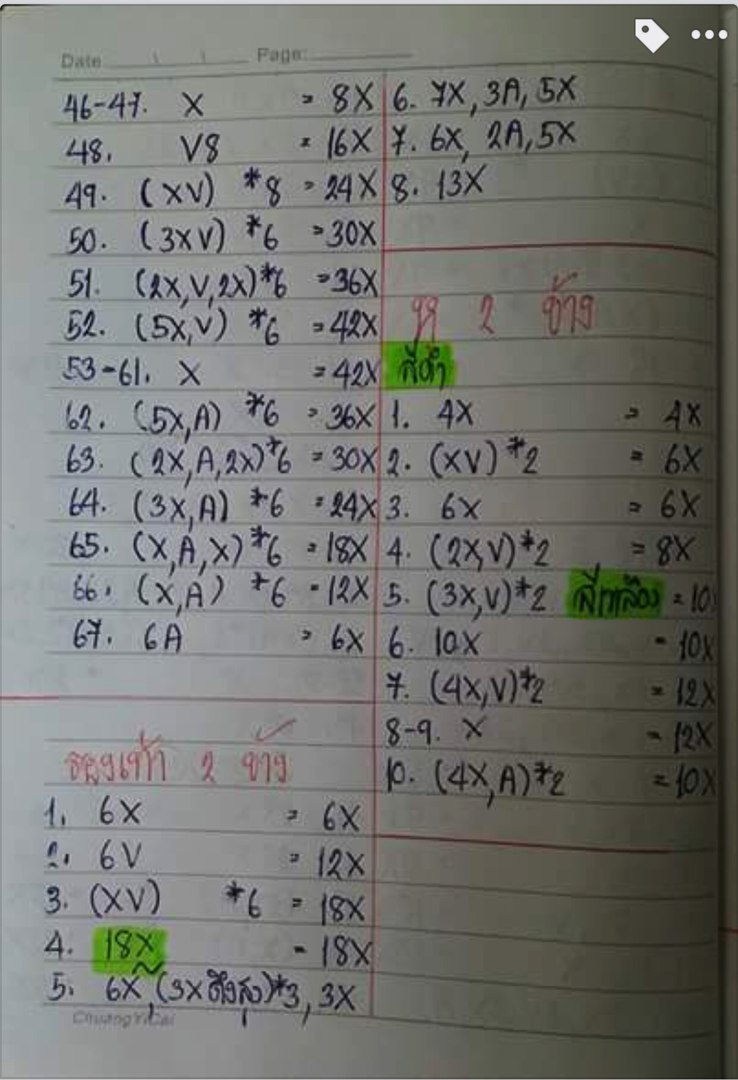 Date Page:
46-47. X = 8X
48. V8 = 16X
49. (XV) *8 = 24X
50. (3XV) *6 = 30X
51. (2X,V,2X)*6 = 36X
52. (5X,V) *6 = 42X
53-61. X = 42X
62. (5X,A) *6 = 36X
63. (2X,A,2X)*6 = 30X
64. (3X,A) *6 = 24X
65. (X,A,X)*6 = 18X
66. (X,A) *6 = 12X
67. 6A = 6X
รองเท้า 2 ข้าง
1. 6X = 6X
2. 6V = 12X
3. (XV) *6 = 18X
4. 18X = 18X
5. 6X,(3Xดึงสูง)*3, 3X
ChuangYiCai
6. 7X, 3A, 5X
7. 6X, 2A, 5X
8. 13X
หู 2 ข้าง
สีดำ
1. 4X = 4X
2. (XV)*2 = 6X
3. 6X = 6X
4. (2X,V)*2 = 8X
5. (3X,V)*2 สีเหลือง = 10X
6. 10X = 10X
7. (4X,V)*2 = 12X
8-9. X = 12X
10. (4X,A)*2 = 10X